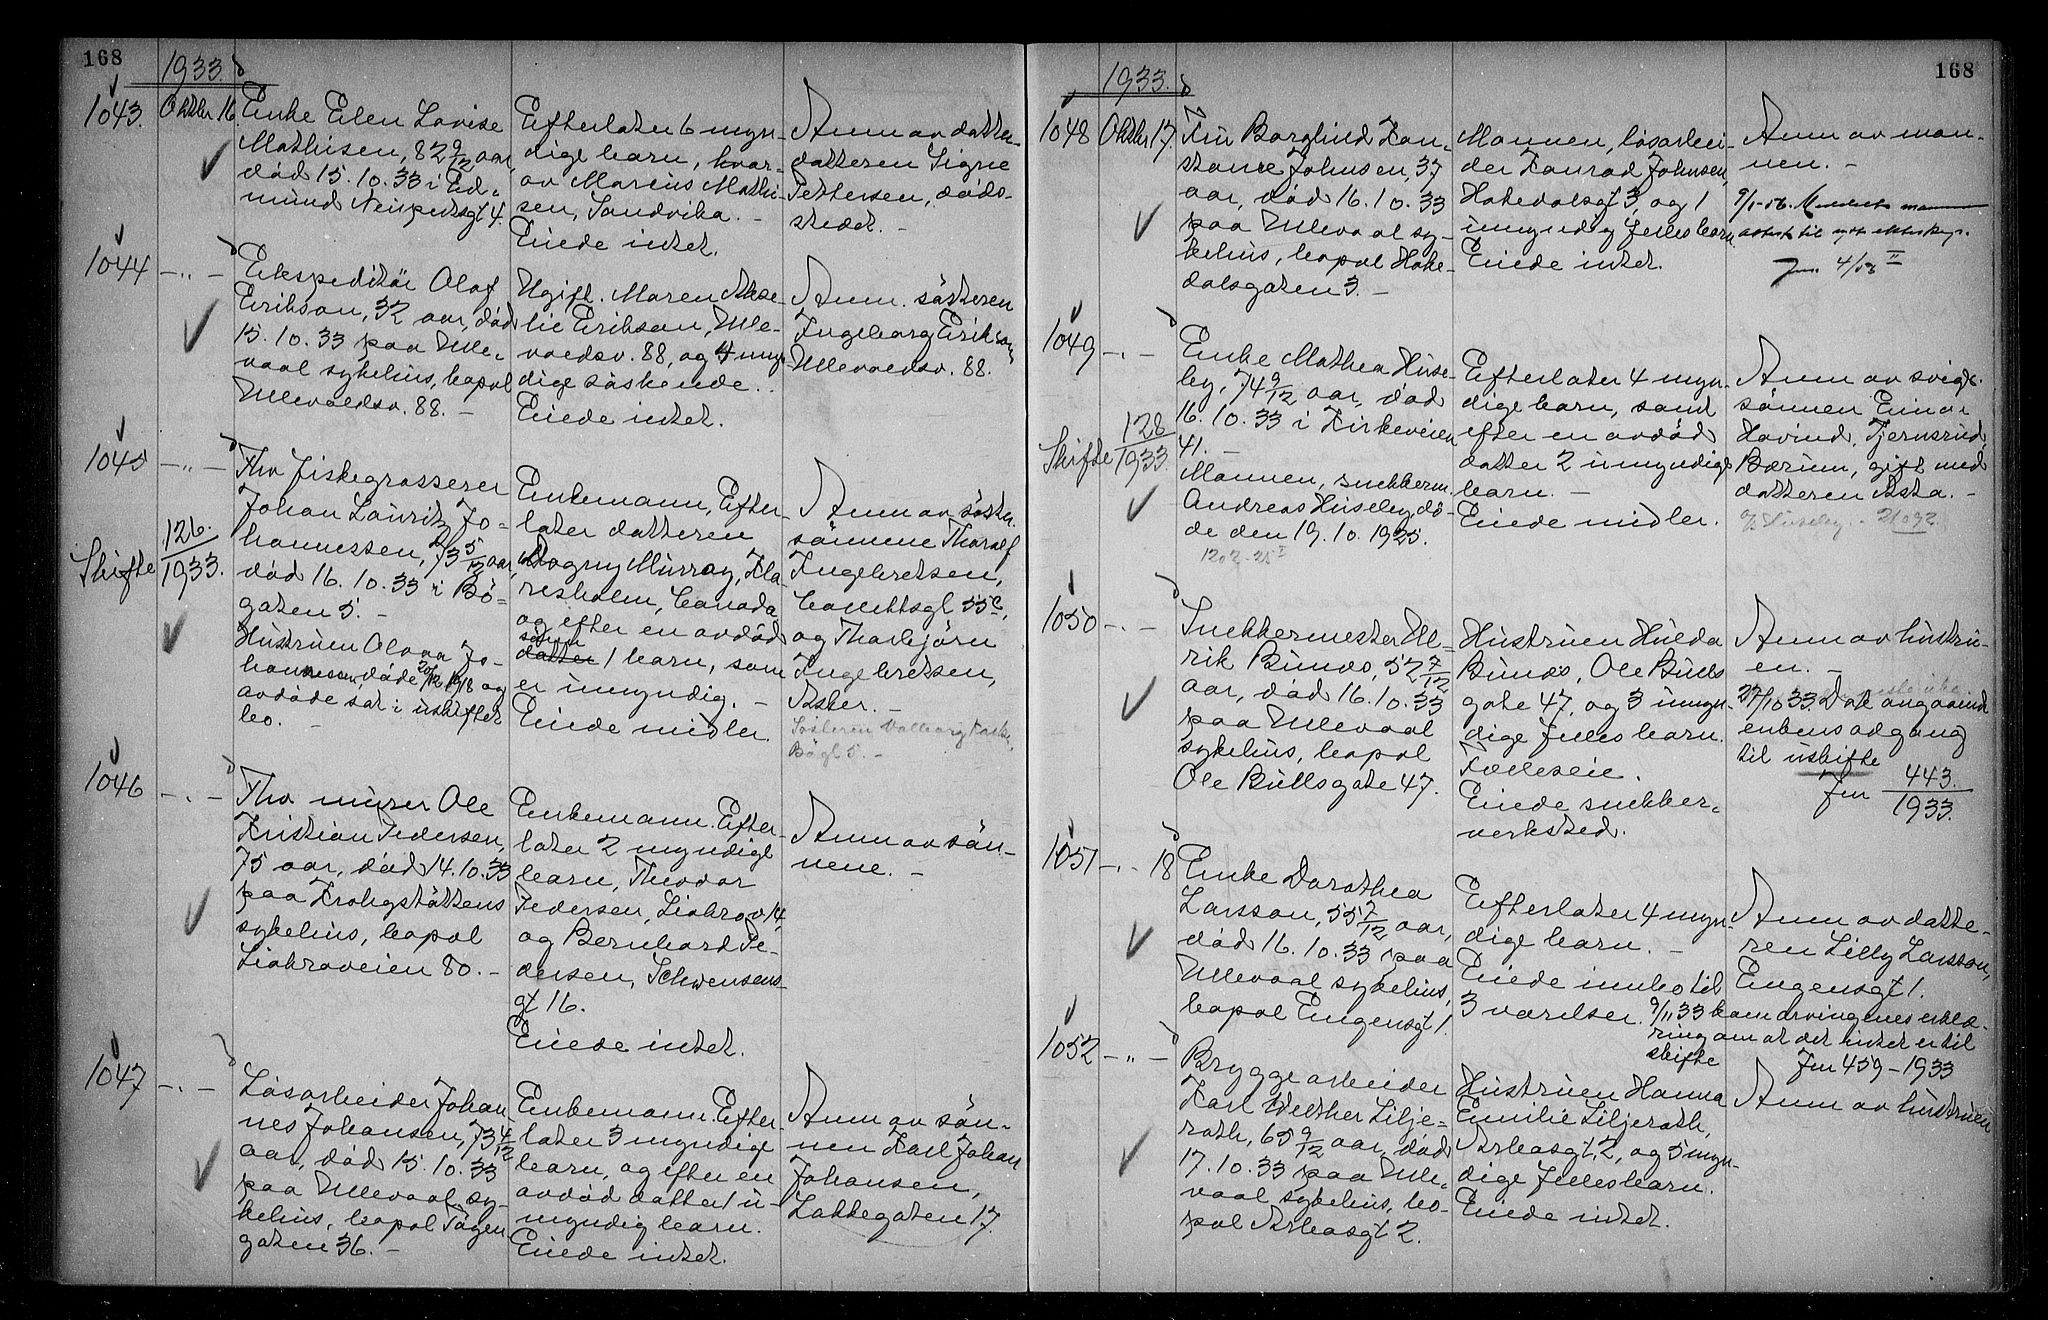 168
1933.
1043.
Oktbr 16.
Enke Elen Lovise
Mathisen, 82 9/12 aar,
död 15.10.33 i Ed-
mund Neupertsgt 4.
Efterlater 6 myn-
dige barn, hvor-
av Marius Mathi-
sen, Sandvika. -
Eiede intet.
Anm av datter-
datteren Signe
Pettersen, döds-
stedet. -
1044
-"-
Ekspeditör Olaf
Erikson, 32 aar, död
15.10.33 paa Ulle-
vaal sykehus, bopæl
Ullevoldsv. 88. -
Ugift. Moren
lie Erikson, Ulle-
voldsv. 88, og 4 myn-
dige söskende.
Eiede intet.
Anm. søsteren
Ingeborg Erikson,
Ullevoldsv. 88.
1045
-"-
Skifte 126./1933.
Fhv fiskegrosserer
Johan Lauritz Jo-
hannessen, 73 5/12 aar,
död 16.10.33 i Bö-
gaten 5. -
Hustruen Olava Jo-
hannessen döde 20/12 1918 og
avdöde sat i uskiftet
bo. -
Enkemann, Efter-
later datteren
Dagny Murray, Kla-
resholm, Canada
og efter en avdöd
sönn
datter 1 barn, som
er umyndig. -
Eiede midler.
Anm av söster-
sönnene Thoralf
Ingebretsen,
Colletts gt 55 c,
og Thorbjörn
Ingebretsen,
Asker. -
Søsteren Valborg
Bögt 5. -
1046
-"-
Fhv murer Ole
Kristian Pedersen,
75 aar, död 14.10.33
paa Krohgstöttens
sykehus, bopæl
Liabroveien 80. -
Enkemann. Efter-
later 2 myndige
barn, Theodor
Pedersen, Liabrov 14,
og Bernhard Pe-
dersen, Schwensens-
gt 16.
Eiede intet.
Anm av sön-
nene. -
1047
-"-
Lösarbeider Johan
nes Johansen, 73 4/12
aar, död 15.10.33
paa Ullevaal sy-
kehus, bopæl Tøyen
gaten 36. -
Enkemann. Efter-
later 3 myndige
barn, og efter en
avdöd datter 1 u-
myndig barn.
Eiede intet.
Anm av sön-
nen Karl Johan
Johansen,
Lakkegaten 17.
168
1933.
1048
Oktbr 17.
Fru Borghild Kon-
stance Johnsen, 37
aar, död 16.10.33
paa Ullevaal sy-
kehus, bopæl Hake-
dalsgaten 3. -
Mannen, løsarbei-
der Konrad Johnsen,
Hakedalsgt 3, og 1
umyndig fellesbarn
Eiede intet.
Anm av man-
nen. -
9/1-56. mannen
attest til nytt ekteskap.
Jnr. 4/56 II
1049
-"-
Skifte 128/1933.
Enke Mathea Huse-
by, 74 9/12 aar, död
16.10.33 i Kirkeveien
41. -
Mannen, snekkerm.
Andreas Huseby, dö-
de den 19.10.1925.
1202-25 I
Efterlater 4 myn-
dige barn, samt
efter en avdöd
datter 2 umyndige
barn. -
Eiede midler.
Anm av sviger-
sönnen Einar
Hovind, Tjernsrud,
Bærum, gift med
datteren Asta. -
Huseby - 21092.
1050
-"-
Snekkermester Ul-
rik Bunæs, 52 7/12
aar, död 16.10.33
paa Ullevaal
sykehus, bopæl
Ole Bullsgate 47.
Hustruen Hulda
Bunæs, Ole Bulls
gate 47, og 3 umyn-
dige fellesbarn.
Felleseie.
Eiede snekker-
verksted.
Anm av hustru-
en. -
27/10 33. Dok angaaende
enkens adgang
til uskifte
Jnr 443./1933.
1051
-"- 18
Enke Dorothea
Larsson, 55 7/12 aar,
död 16.10.33 paa
Ullevaal sykehus,
bopæl Eugensgt 1.
Efterlater 4 myn-
dige barn. -
Eiede innbo til
3 værelser.
Anm av datte-
ren Lilly Larsson,
Eugensgt 1.
9/11 33 kom arvingenes erklæ-
ring om at det intet er til
skifte
Jnr 459-1933
1052
-"-
Bryggearbeider
Karl Walther Lilje-
roth, 65 9/12 aar, död
17.10.33 paa Ulle-
vaal sykehus, bo-
pæl Aslaksgt 2.
Hustruen Hanna
Emilie Liljeroth,
gt 2, og 5 myn-
dige fellesbarn.
Eiede intet.
Anm av hustruen